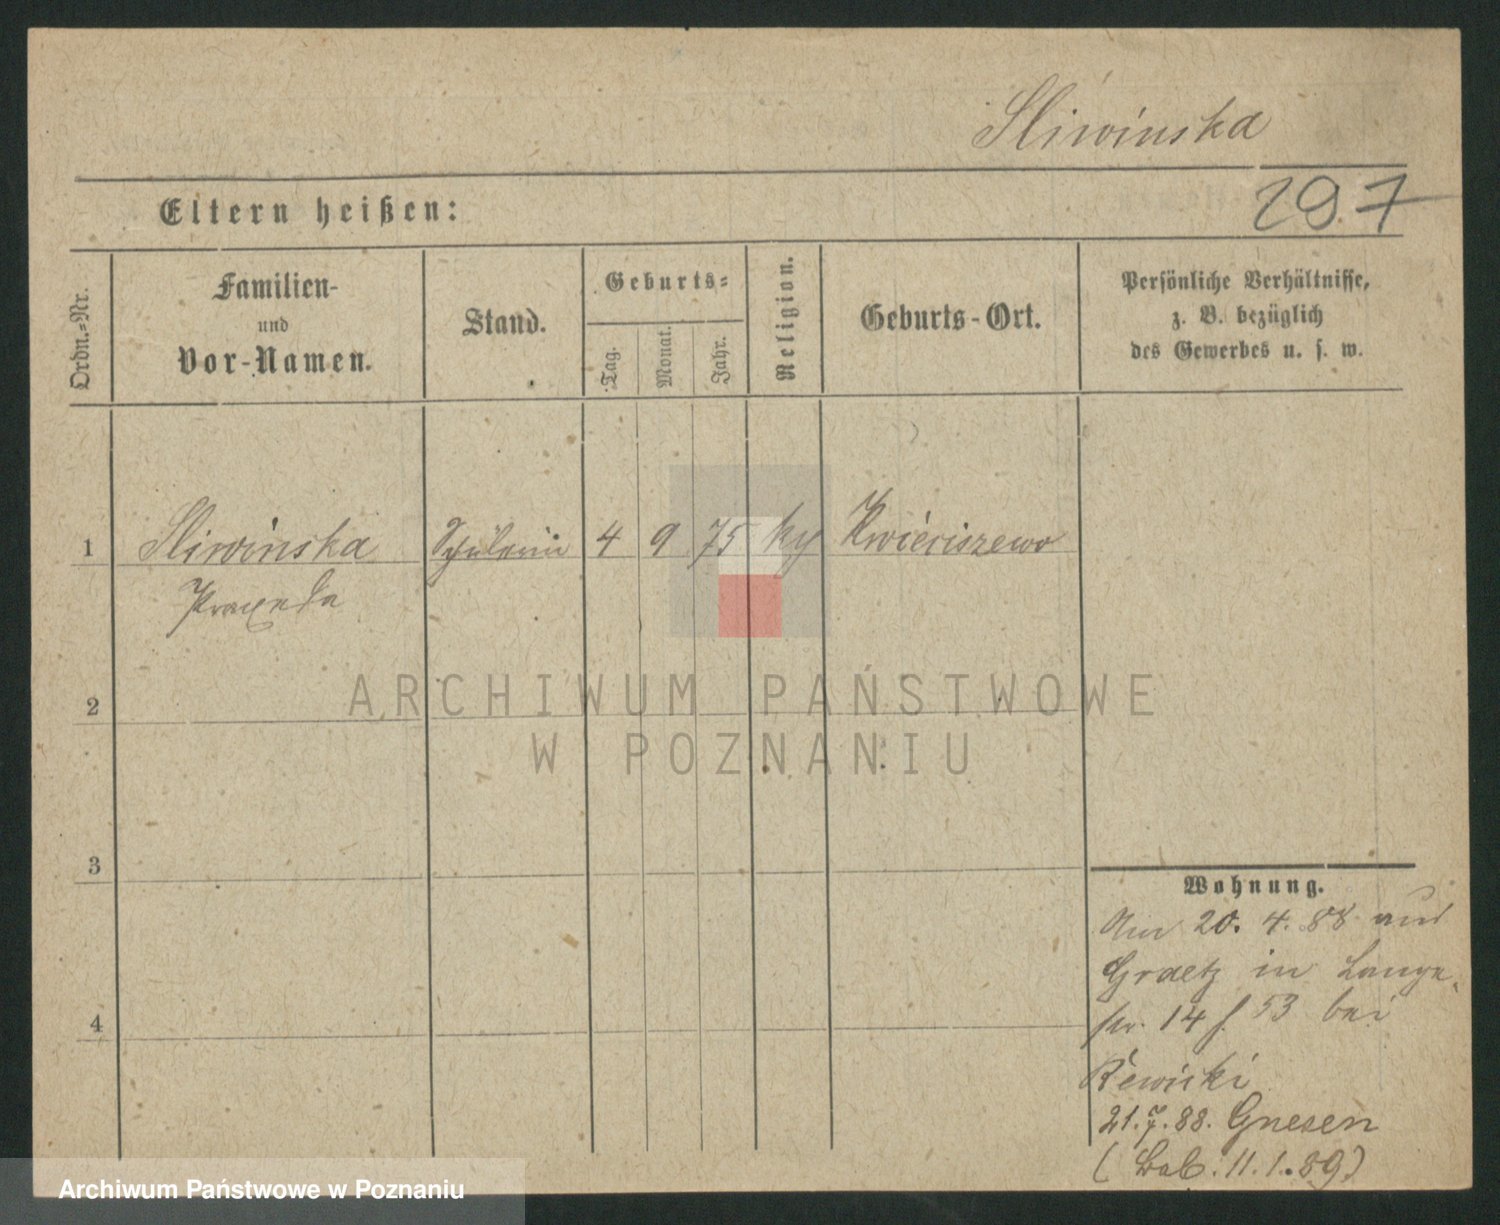 Sliwinska
297
Eltern heißen:
Ordn.-Nr.
Familien-
und
Vor-Namen.
Stand.
Geburts-
Tag.
Monat.
Jahr.
Religion.
Geburts-Ort.
Persönliche Verhältnisse,
z. B. bezüglich
des Gewerbes u. s. w.
1 Sliwinska Schülerin 4 9 75 ky Kwieciszewo
Praxeda
2
3
4
Wohnung.
Am 20. 4. 88 aus
Graetz in Lange-
str. 14 f. 53 bei
21.7.88. Gnesen
11.1.89)
ARCHIWUM PAŃSTWOWE
W POZNANIU
Archiwum Państwowe w Poznaniu